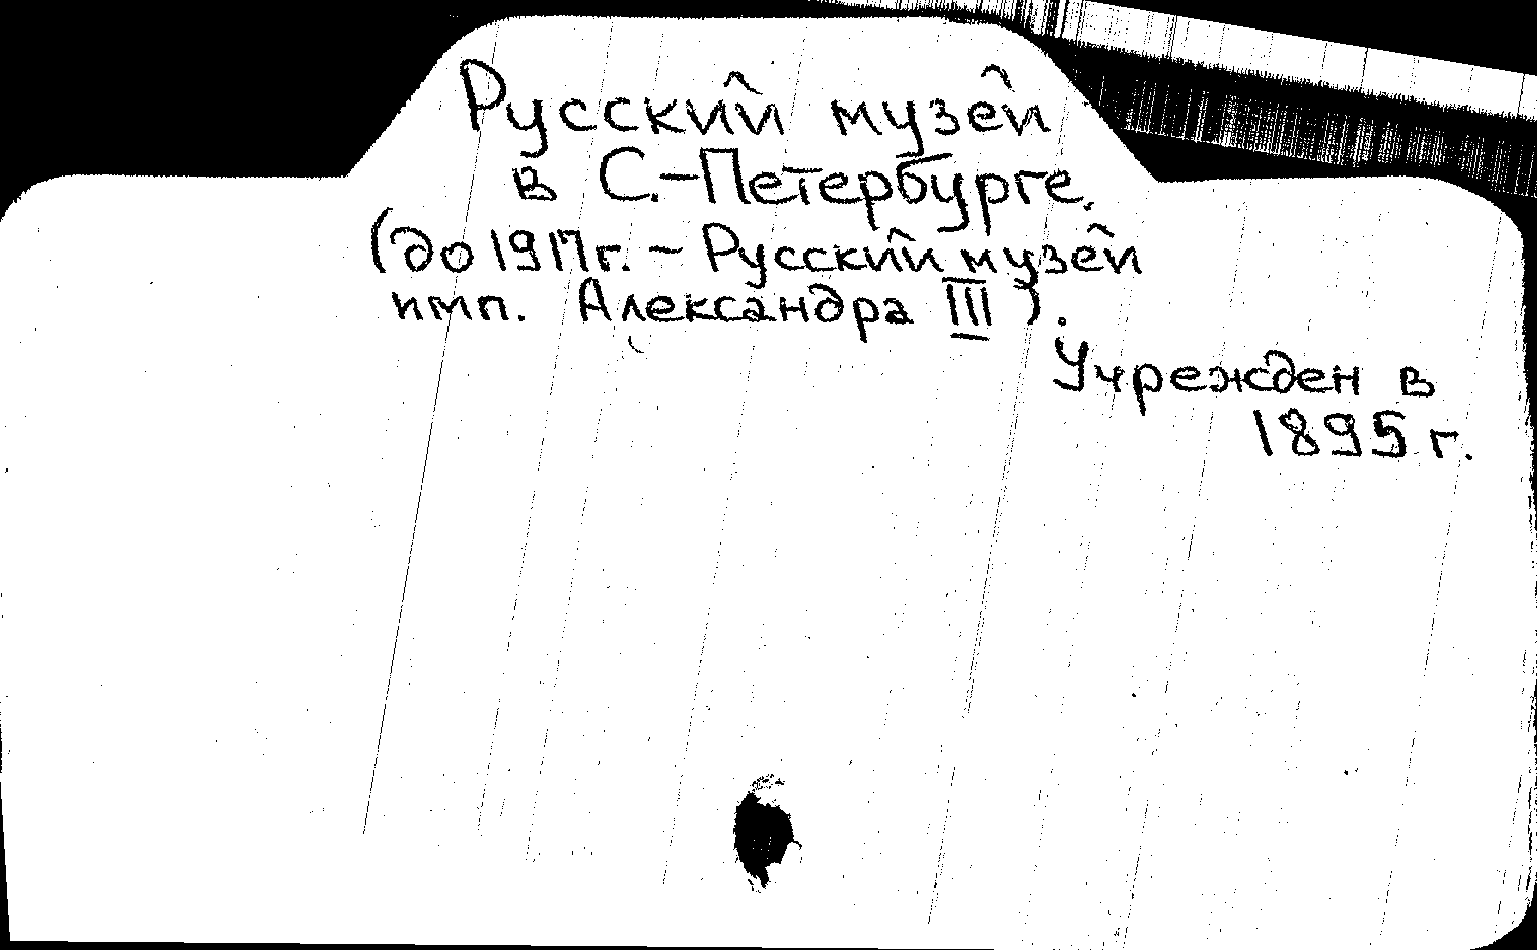 Русский музей
в С.-Петербурге.
(до 1917г. - Русский музей
имп. Александра III).
Учрежден в
1895 г.